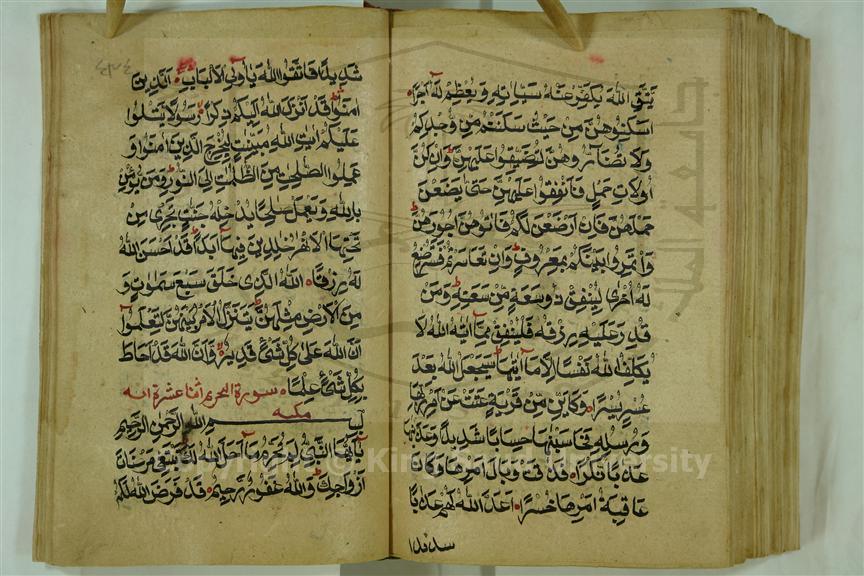 يَتَّقِ اللهَ يُكَفِّرْ عَنْهُ سَيِّاٰتِهٖ وَيُعْظِمْ لَهٗٓ اَجْرًا
اَسْكِنُوْهُنَّ مِنْ حَيْثُ سَكَنْتُمْ مِنْ وُجْدِكُمْ
وَلَا تُضَآرُّوْهُنَّ لِتُضَيِّقُوْا عَلَيْهِنَّ وَاِنْ كُنَّ
اُولَاتِ حَمْلٍ فَاَنْفِقُوْا عَلَيْهِنَّ حَتّٰى يَضَعْنَ
حَمْلَهُنَّ فَاِنْ اَرْضَعْنَ لَكُمْ فَاٰتُوْهُنَّ اُجُوْرَهُنَّ
وَاْتَمِرُوْا بَيْنَكُمْ بِمَعْرُوْفٍ وَاِنْ تَعَاسَرْتُمْ فَسَتُرْضِعُ
لَهٗٓ اُخْرٰى لِيُنْفِقْ ذُوْ سَعَةٍ مِنْ سَعَتِهٖ وَمَنْ
قُدِرَ عَلَيْهِ رِزْقُهٗ فَلْيُنْفِقْ مِمَّآ اٰتٰهُ اللهُ لَا
يُكَلِّفُ اللهُ نَفْسًا اِلَّا مَآ اٰتٰىهَا سَيَجْعَلُ اللهُ بَعْدَ
عُسْرٍ يُسْرًا وَكَاَيِّنْ مِّنْ قَرْيَةٍ عَتَتْ عَنْ اَمْرِ رَبِّهَا
وَرُسُلِهٖ فَحَاسَبْنٰهَا حِسَابًا شَدِيْدًا وَعَذَّبْنٰهَا
عَذَابًا نُّكْرًا فَذَاقَتْ وَبَالَ اَمْرِهَا وَكَانَ
عَاقِبَةُ اَمْرِهَا خُسْرًا اَعَدَّ اللهُ لَهُمْ عَذَابًا
شديدا
شَدِيْدًا فَاتَّقُوا اللهَ يٰٓاُولِى الْاَلْبَابِ الَّذِيْنَ
اٰمَنُوْا قَدْ اَنْزَلَ اللهُ اِلَيْكُمْ ذِكْرًا رَسُوْلًا يَتْلُوْا
عَلَيْكُمْ اٰيٰتِ اللهِ مُبَيِّنٰتٍ لِيُخْرِجَ الَّذِيْنَ اٰمَنُوْا وَ
عَمِلُوا الصّٰلِحٰتِ مِنَ الظُّلُمٰتِ اِلَى النُّوْرِ وَمَنْ يُؤْمِنْ
بِاللهِ وَيَعْمَلْ صَالِحًا يُدْخِلْهُ جَنّٰتٍ تَجْرِىْ مِنْ
تَحْتِهَا الْاَنْهٰرُ خٰلِدِيْنَ فِيْهَآ اَبَدًا قَدْ اَحْسَنَ اللهُ
لَهٗ رِزْقًا اَللهُ الَّذِىْ خَلَقَ سَبْعَ سَمٰوٰتٍ وَ
مِنَ الْاَرْضِ مِثْلَهُنَّ يَتَنَزَّلُ الْاَمْرُ بَيْنَهُنَّ لِتَعْلَمُوْٓا
اَنَّ اللهَ عَلٰى كُلِّ شَىْءٍ قَدِيْرٌ وَاَنَّ اللهَ قَدْ اَحَاطَ
بِكُلِّ شَىْءٍ عِلْمًا سورة التحريم اثنا عشرة اية
مكية
بِسْمِ اللهِ الرَّحْمٰنِ الرَّحِيْمِ
يٰٓاَيُّهَا النَّبِىُّ لِمَ تُحَرِّمُ مَآ اَحَلَّ اللهُ لَكَ تَبْتَغِىْ مَرْضَاتَ
اَزْوَاجِكَ وَاللهُ غَفُوْرٌ رَّحِيْمٌ قَدْ فَرَضَ اللهُ لَكُمْ
Copyright © King Saud University
جامعة الملك